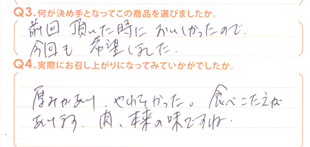 Q3.何が決め手となってこの商品を選びましたか。
前回 頂いた時に おいしかったので、
今回も 希望しました。
Q4.実際にお召し上がりになってみていかがでしたか。
厚みがあり、やわらかった。食べこたえが
あります。肉、本来の味ですね。